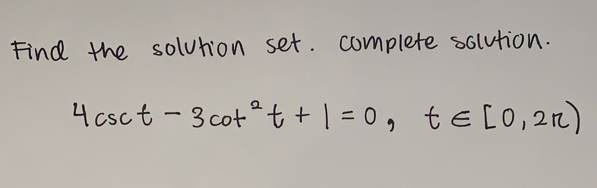 Find the solution set. complete solution.
4 csc t - 3 cot² t + 1 = 0, t ∈ [0, 2π)